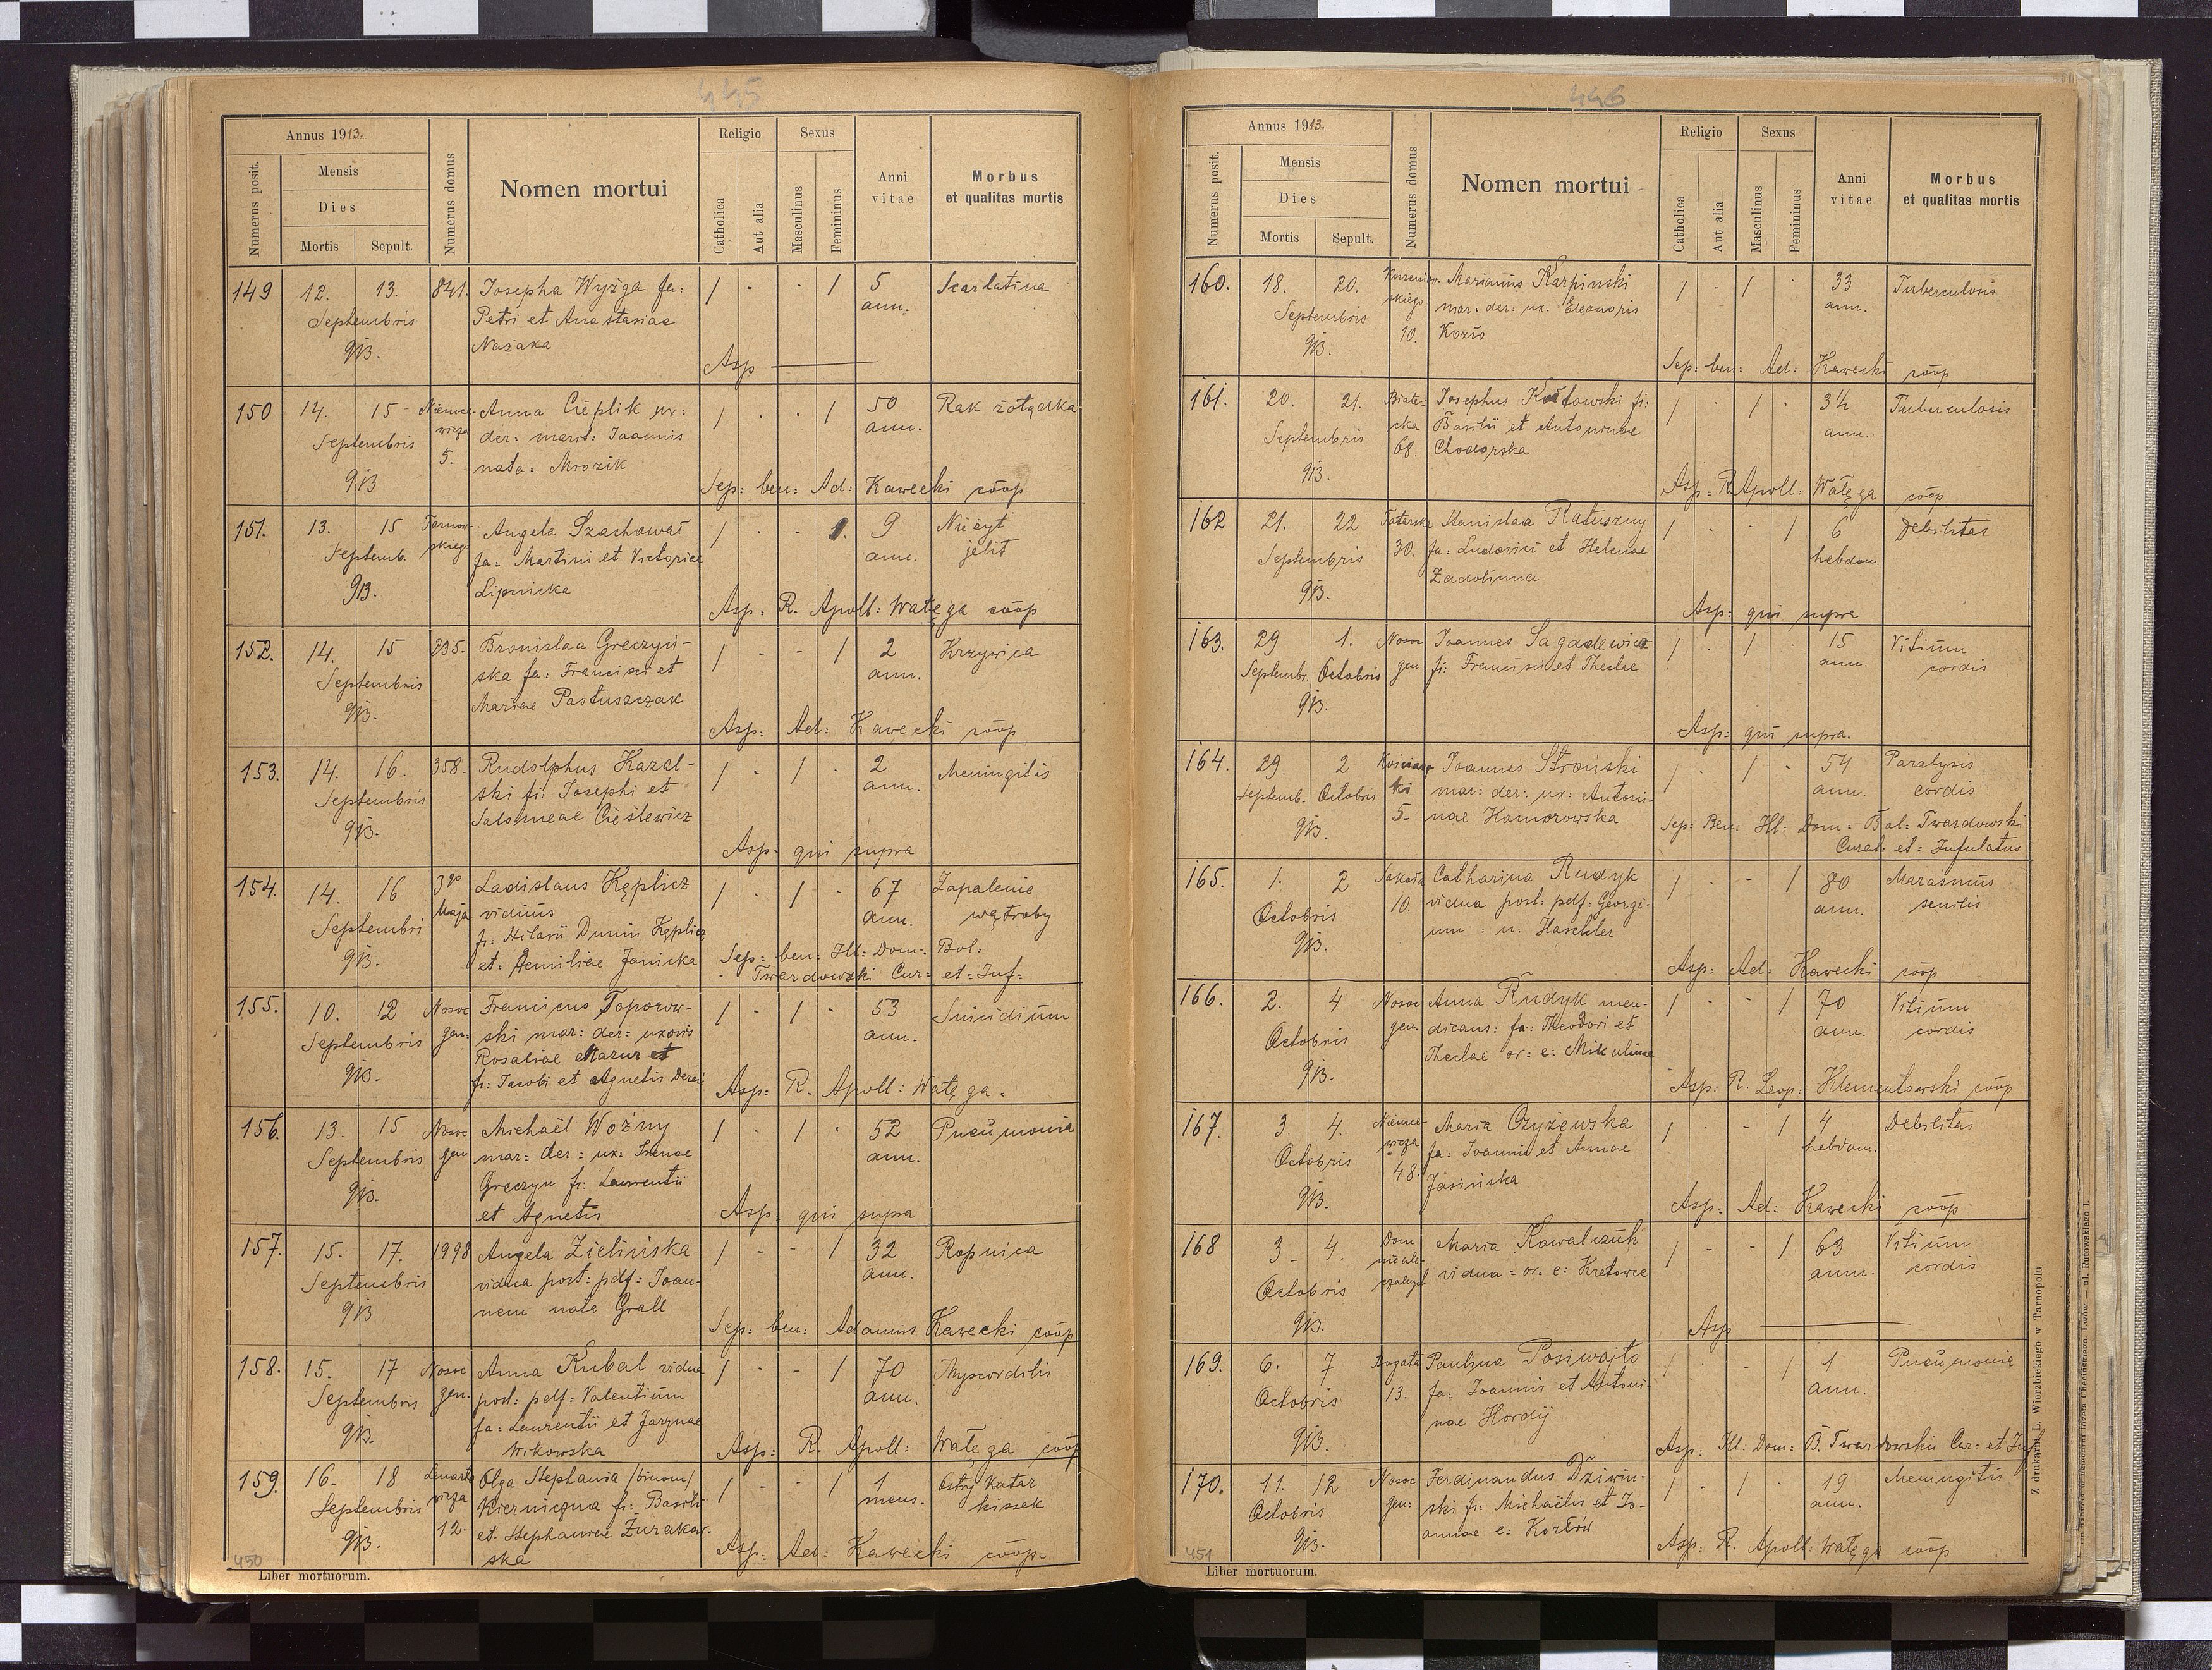 445
Annus 1913.
Numerus posit.
Mensis
Dies
Mortis
Sepult.
Numerus domus
Nomen mortui
Religio
Catholica
Aut alia
Sexus
Masculinus
Femininus
Anni
vitae
Morbus
et qualitas mortis
149 12. 13. 841. Josepha Wyżga fa: 1 - - 1 5 Scarlatina
Septembris Petri et Anastasiae ann.
913. Nazaka
Asp
150 14. 15 Niemce- Anna Cieplik ux: 1 - - 1 50 Rak żołądka
Septembris wicza der: marit: Joannis ann.
913 5. nata: Mrozik
Sep: ben: Ad: Kawecki coop
151. 13. 15 Tarnow- Angela Szachował 1 - - 1. 9 Nieżyt
Septemb. skiego fa: Martini et Victoriae ann. jelit
913. Lipnicka
Asp. R. Apoll: Wałęga coop
152. 14. 15 235. Bronislaa Greczyń- 1 - - 1 2 Krzywica
Septembris ska fa: Francisci et ann.
913. Mariae Pastuszczak
Asp: Ad: Kawecki coop
153. 14. 16. 358. Rudolphus Kazal- 1 - 1 - 2 Meningitis
Septembris ski fi: Josephi et ann.
913. Salomeae Cieślewicz
Asp- qui supra
154. 14. 16 3go Ladislaus Kęplicz 1 - 1 - 67 Zapalenie
Septembri Maja viduus ann. wątroby
913. f: Hilarii Dunin Kęplicz
et: Aemiliae Janicka Sep: ben: Ill: Dom: Bol:
Twardowski Cur: et=Inf-
155. 10. 12 Nosoc Francicus Toporow- 1 - 1 - 53 Suicidium
Septembris gen- ski mar: der: uxoris ann.
913. Rosaliae Mazur et
f: Jacobi et Agnetis Asp: R. Apoll: Wałęga.
156. 13. 15 Nosoc Michaël Woźny 1 - 1 - 52 Pneumonia
Septembris gen mar: der: ux: Irenae ann.
913. Greczyn f: Laurentii
et Agnetis Asp: qui supra
157. 15. 17. 1998 Angela Zielińska 1 - - 1 32 Ropnica
Septembris vidua post: pdf: Joan- ann.
913 nem nata Grall
Sep: ben: Adamus Kawecki coop
158. 15. 17 Nosoc Anna Kubal vidua 1 - - 1 70 Myocorditis
Septembris gen. post: pdf: Valentium ann.
913. fa: Laurentii et
Wikowska Asp: R. Apoll: Wałęga coop
159. 16. 18 Lenarto Olga Stephania /binom/ 1 - - 1 1 Ostry Katar
Septembris wicza Kierniczna f: Basilii mens. kiszek
913. 12. et Stephaniae Żurakow-
ska Asp: Ad: Kawecki coop-
450
Liber mortuorum.
446
Annus 1913.
Numerus posit.
Mensis
Dies
Mortis
Sepult.
Numerus domus
Nomen mortui
Religio
Catholica
Aut alia
Sexus
Masculinus
Femininus
Anni
vitae
Morbus
et qualitas mortis
160. 18. 20. Marianus Karpinski 1 - 1 - 33 Tuberculosis
Septembris skiego mar: der: ux: Eleonoris ann.
913. 10. Kozio
Sep: ben: Ad: Kawecki coop
161. 20. 21. Josephus fi: 1 - 1 - 3½ Tuberculosis
Septembris Basilii et Antoninae ann.
913. 68. Chodorska
Asp: R. Apoll: Wałęga coop
162 21. 22 Tatarska Stanislaa Ratuszny 1 - - 1 6 Debilitas
Septembris 30. fa: Ludovici et Helenae hebdom.
913. Zadolinna
Asp: qui supra
163. 29 1. Nosoc Joannes Sagadewicz 1 - 1 - 15 Vitium
Septembr. Octobris gen fi: Francisci et Theclae ann. cordis
913.
Asp: qui supra.
164. 29. 2 Joannes Stroński 1 - 1 - 54 Paralysis
Septemb. Octobris mar: der: ux: Antoni- ann. cordis
913. 5- nae Komorowska Sep: Ben: Ill: Dom: Bol: Twardowski
Curat: et: Infulatus
165. 1. 2 Sokoła Catharina Rudyk 1 - - 1 80 Marasmus
Octobris 10. vidua post: pdf: Georgi- ann. senilis
913. um : n: Haschler
Asp: Ad: Kawecki coop
166. 2. 4 Nosoc Anna Rudyk men- 1 - - 1 70 Vitium
Octobris gen. dicans: fa: Theodori et ann. cordis
913. Theclae or: e: Mikulince
Asp: R. Leop: Klementowski coop
167. 3. 4. Niemce- Maria Czyżewska 1 - - 1 4 Debilitas
Octobris wicza fa: Joannis et Annae hebdom.
913. 48. Jasinicka
Asp: Ad: Kawecki coop
168 3- 4. Dom Maria Kowalczuk 1 - - 1 63 Vitium
Octobris vidua = or. e: Kretowce ann. cordis
913.
Asp
169. 6. 7 Bogata Paulina Posiwajło 1 - - 1 1 Pneumonia
Octobris 13. fa: Joannis et Antoni- ann.
913. nae Hordij
Asp: Ill: Dom: B. Twardowski Cur- et Inf
170. 11. 12 Nosoc Ferdinandus Dziwin- 1 - 1 - 19 Meningitis
Octobris gen: ski f: Michaëlis et Jo- ann.
913. annae e: Kozłów
Asp: R. Apoll: Wałęga coop
451
Liber mortuorum.
Z drukarni L. Wierzbickiego w Tarnopolu